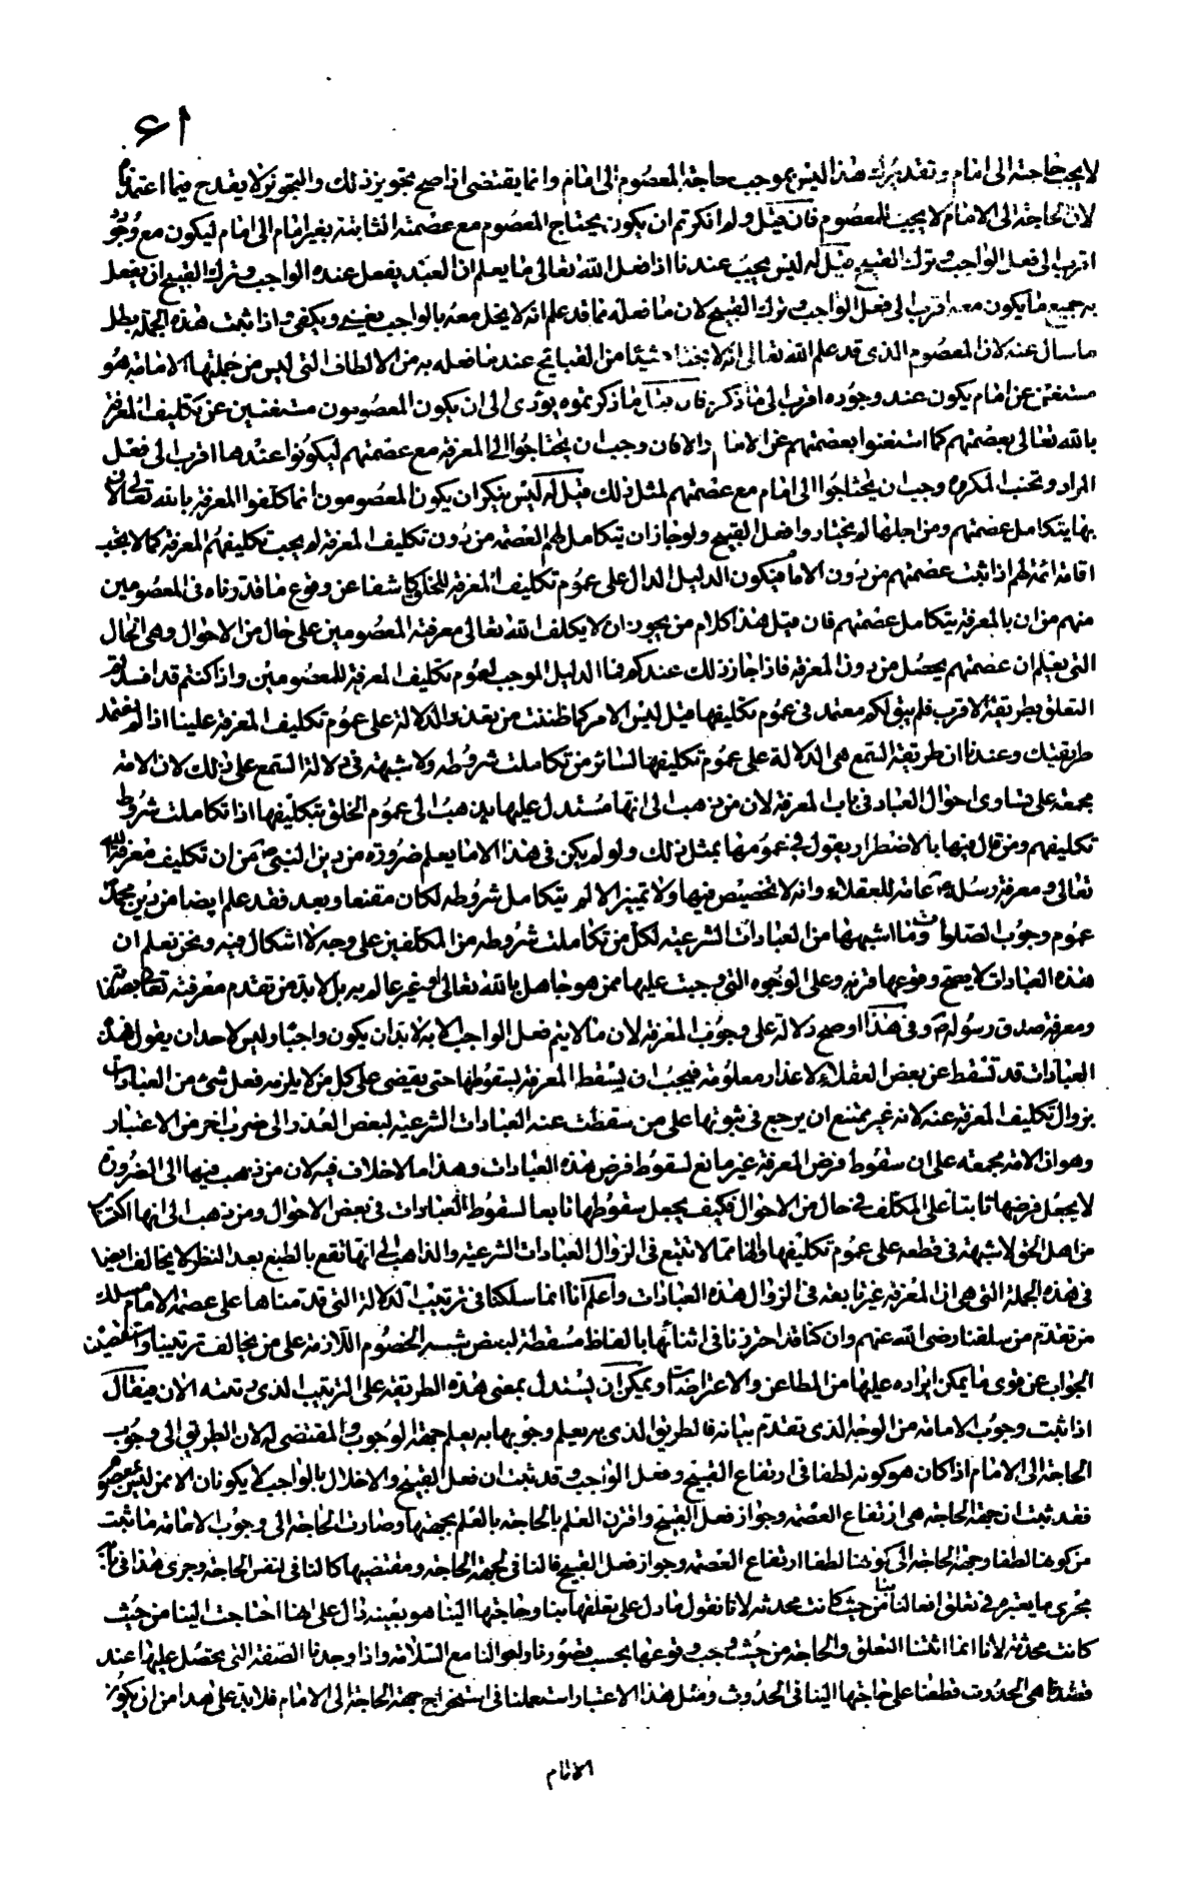 ٦١
لا يجب حاجته الى امام وتقدير ذلك هذا ليس بموجب حاجة المعصوم الى امام وانما يقتضى اذا صح تجويز ذلك والتجويز لا يقدح فيما اعتمدناه
لان الحاجة الى الامام لا يجب للمعصوم فان قيل ولم انكرتم ان يكون يحتاج المعصوم مع عصمته الثابتة بغير امام الى امام ليكون مع وجوده
اقرب الى فعل الواجب وترك القبيح قيل له ليس يجب عندنا اذا فعل الله تعالى ما يعلم ان العبد يفعل عنده الواجب وترك القبيح ان يفعل
به جميع ما يكون معه اقرب الى فعل الواجب وترك القبيح لان ما فعله مما قد علم انه لا يخل معه بالواجب يغنى ويكفى واذا ثبت هذه الجملة بطل
ما سال عنه لان المعصوم الذى قد علم الله تعالى انه لا يختار شيئا من القبائح عند ما فعله به من الالطاف التى ليس من جملتها الامامة هو
مستغن عن امام يكون عند وجوده اقرب الى ما ذكر فان قيل ما ذكرتموه يؤدى الى ان يكون المعصومون مستغنين عن تكليف المعرفة
بالله تعالى بعصمتهم كما استغنوا بعصمتهم عن الامام والا فان وجب ان يحتاجوا الى المعرفة مع عصمتهم ليكونوا عندها اقرب الى فعل
المراد وتجنب المكروه وجب ان يحتاجوا الى امام مع عصمتهم لمثل ذلك قيل له ليس ينكر ان يكون المعصومون انما كلفوا المعرفة بالله تعالى لان
بها يتكامل عصمتهم ومن اجلها لم يختاروا فعل القبيح ولو جاز ان يتكامل لهم العصمة من دون تكليف المعرفة لم يجب تكليفهم المعرفة كما لا يجب
اقامة ائمة لهم اذا ثبت عصمتهم من دون الامام فيكون الدليل الدال على عموم تكليف المعرفة للخلق كاشفا عن وقوع ما قدرناه فى المعصومين
منهم من ان بالمعرفة يتكامل عصمتهم فان قيل هذا كلام من يجوز ان لا يكلف الله تعالى معرفته المعصومين على حال من الاحوال وهى الحال
التى يعلم ان عصمتهم يحصل من دون المعرفة فاذا جاز ذلك عندكم فما الدليل الموجب لعموم تكليف المعرفة للمعصومين واذا كنتم قد افسدتم
التعلق بطريقة الاقرب فلم يبق لكم معتمد فى عموم تكليفها قيل ليس الامر كما ظننت من تعذر الدلالة على عموم تكليف المعرفة علينا اذا لم نعتمد
طريقتك وعندنا ان طريقة السمع هى الدلالة على عموم تكليفها لسائر من تكاملت شروطه ولا شبهة فى دلالة السمع على ذلك لان الامة
مجمعة على تساوى احوال العباد فى باب المعرفة لان من ذهب الى انها مستدل عليها يذهب الى عموم الخلق بتكليفها اذا تكاملت شروط
تكليفهم ومن قال فيها بالاضطرار يقول فى عمومها بمثل ذلك ولو لم يكن فى هذا الا ما يعلم ضرورة من دين النبى ص من ان تكليف معرفة الله
تعالى ومعرفة رسله ع عامة للعقلاء وانه لا تخصيص فيها ولا تميز الا لمن لم يتكامل شروطه لكان مقنعا وبعد فقد علم ايضا من دين محمد
عموم وجوب الصلوات وما اشبهها من العبادات الشرعية لكل من تكاملت شروطه من المكلفين على وجه لا اشكال فيه ونحن نعلم ان
هذه العبادات لا يصح وقوعها قربة وعلى الوجوه التى وجبت عليها ممن هو جاهل بالله تعالى او غير عالم به بل لا بد من تقدم معرفته تعالى بصفاته
ومعرفة صدق رسوله ص وفى هذا اوضح دلالة على وجوب المعرفة لان ما لا يتم فعل الواجب الا به لا بد ان يكون واجبا وليس لاحد ان يقول هذه
العبادات قد تسقط عن بعض العقلاء لاعذار معلومة فيجب ان يسقط المعرفة لسقوطها حتى يقضى على كل من لا يلزمه فعل شئ من العبادات
بزوال تكليف المعرفة عنه لانه غير ممتنع ان يرجع فى ثبوتها على من سقطت عنه العبادات الشرعية لبعض العذر الى ضرب اخر من الاعتبار
وهو ان الامة مجمعة على ان سقوط فرض المعرفة غير مانع لسقوط فرض هذه العبادات وهذا ما لا خلاف فيه لان من ذهب فيها الى الضرورة
لا يجعل فرضها ثابتا على المكلف فى حال من الاحوال فكيف يجعل سقوطها تابعا لسقوط العبادات فى بعض الاحوال ومن ذهب الى انها اكتساب
من اهل الحق لا شبهة فى قطعه على عموم تكليفها وانها مما لا تتبع فى الزوال العبادات الشرعية والذاهب الى انها تقع بالطبع بعد النظر لا يخالف ايضا
فى هذه الجملة التى هى ان المعرفة غير تابعة فى الزوال هذه العبادات واعلم انا انما سلكنا فى ترتيب الدلالة التى قدمناها على عصمة الامام مسلك
من تقدم من سلفنا رضى الله عنهم وان كنا قد احترزنا فى اثنائها بالفاظ مسقطة لبعض شبه الخصوم اللازمة على من يخالف ترتيبنا واستقصينا
الجواب عن قوى ما يمكن ايراده عليها من المطاعن والاعتراضات ويمكن ان يستدل بمعنى هذه الطريقة على الترتيب الذى نرتبه الان فيقال
اذا ثبت وجوب الامامة من الوجه الذى تقدم بيانه فالطريق الذى به يعلم وجوبها به يعلم جهة الوجوب والمقتضى له لان الطريق الى وجوب
الحاجة الى الامام اذا كان هو كونه لطفا فى ارتفاع القبيح وفعل الواجب وقد ثبت ان فعل القبيح والاخلال بالواجب لا يكونان الا ممن ليس بمعصوم
فقد ثبت ان جهة الحاجة هى ارتفاع العصمة وجواز فعل القبيح واقترن العلم بالحاجة بالعلم بجهتها وصارت الحاجة الى وجوب الامامة ما ثبت
من كونها لطفا وجهة الحاجة الى كونها لطفا ارتفاع العصمة وجواز فعل القبيح فالنافى لجهة الحاجة ومقتضيها كالنافى لنفس الحاجة وجرى هذا فى بابه
مجرى ما يعتبره فى تعلق افعالنا بنا من حيث كانت محدثة لانا نقول ما دل على تعلقها بنا وحاجتها الينا هو بعينه دال على انها احتاجت الينا من حيث
كانت محدثة لانا انما اثبتنا التعلق والحاجة من حيث وجب وقوعها بحسب قصورنا واحوالنا مع السلامة واذا وجدنا الصفة التى يحصل عليها عند
قصدنا هى الحدوث قطعنا على حاجتها الينا فى الحدوث ومثل هذا الاعتبار استعملنا فى استخراج جهة الحاجة الى الامام فلا بد على هذا من ان يكون
الامام